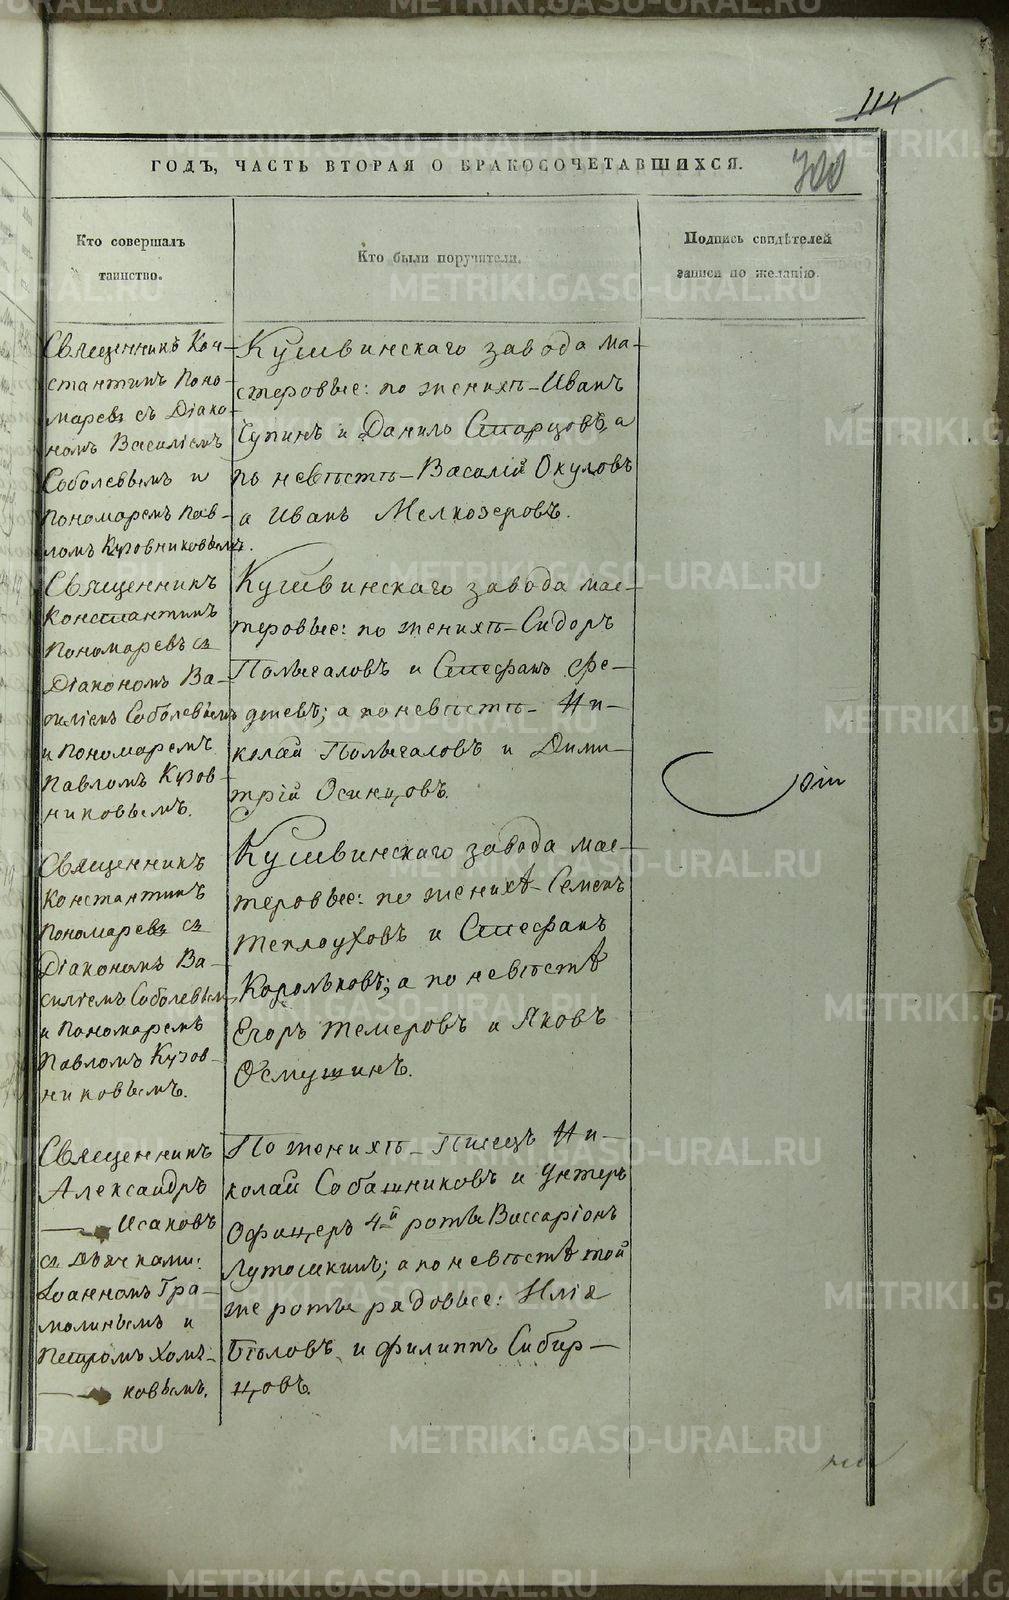 114
ГОДЪ, ЧАСТЬ ВТОРАЯ О БРАКОСОЧЕТАВШИХСЯ.
700
Кто совершалъ
таинство.
Кто были поручители.
Подпись свидѣтелей
записи по желанію.
Священникъ Кон-
стантинъ Поно-
маревъ съ Діако-
номъ Василіемъ
Соболевымъ и
Пономаремъ Пав-
ломъ Кузовниковымъ.
Кушвинскаго завода ма-
стеровые: по женихѣ - Иванъ
Супинъ и Данило Старцовъ, а
по невѣстѣ - Василій Окуловъ
а Иванъ Мелкозеровъ.
Священникъ
Константинъ
Пономаревъ съ
Діакономъ Ва-
силіемъ Соболевымъ
и Пономаремъ
Павломъ Кузов-
никовымъ.
Кушвинскаго завода мас-
теровые: по женихѣ - Сидоръ
Полыгаловъ и Стефанъ Фе-
дневъ; а по невѣстѣ - Ни-
колай Полыгаловъ и Дими-
трій Осинцовъ.
Священникъ
Константинъ
Пономаревъ съ
Діакономъ Ва-
силіемъ Соболевым
и Пономаремъ
Павломъ Кузов-
никовымъ.
Кушвинскаго завода мас-
теровые: по женихѣ - Семенъ
Теплоуховъ и Стефанъ
Корольковъ; а по невѣстѣ
Егоръ Темеровъ и Яковъ
Осмушинъ.
Священникъ
Александръ
Исаковъ
съ Дьячками:
Іоанномъ Гра-
молинымъ и
Петромъ Хомъ-
ковымъ.
По женихѣ - Писецъ Ни-
колай Собашниковъ и Унтеръ
Офицеръ 4й роты Виссаріонъ
Лутошкинъ; а по невѣстѣ той
же роты рядовые: Илія
Бѣловъ и Филиппъ Сибир-
цовъ.
METRIKI.GASO-URAL.RU